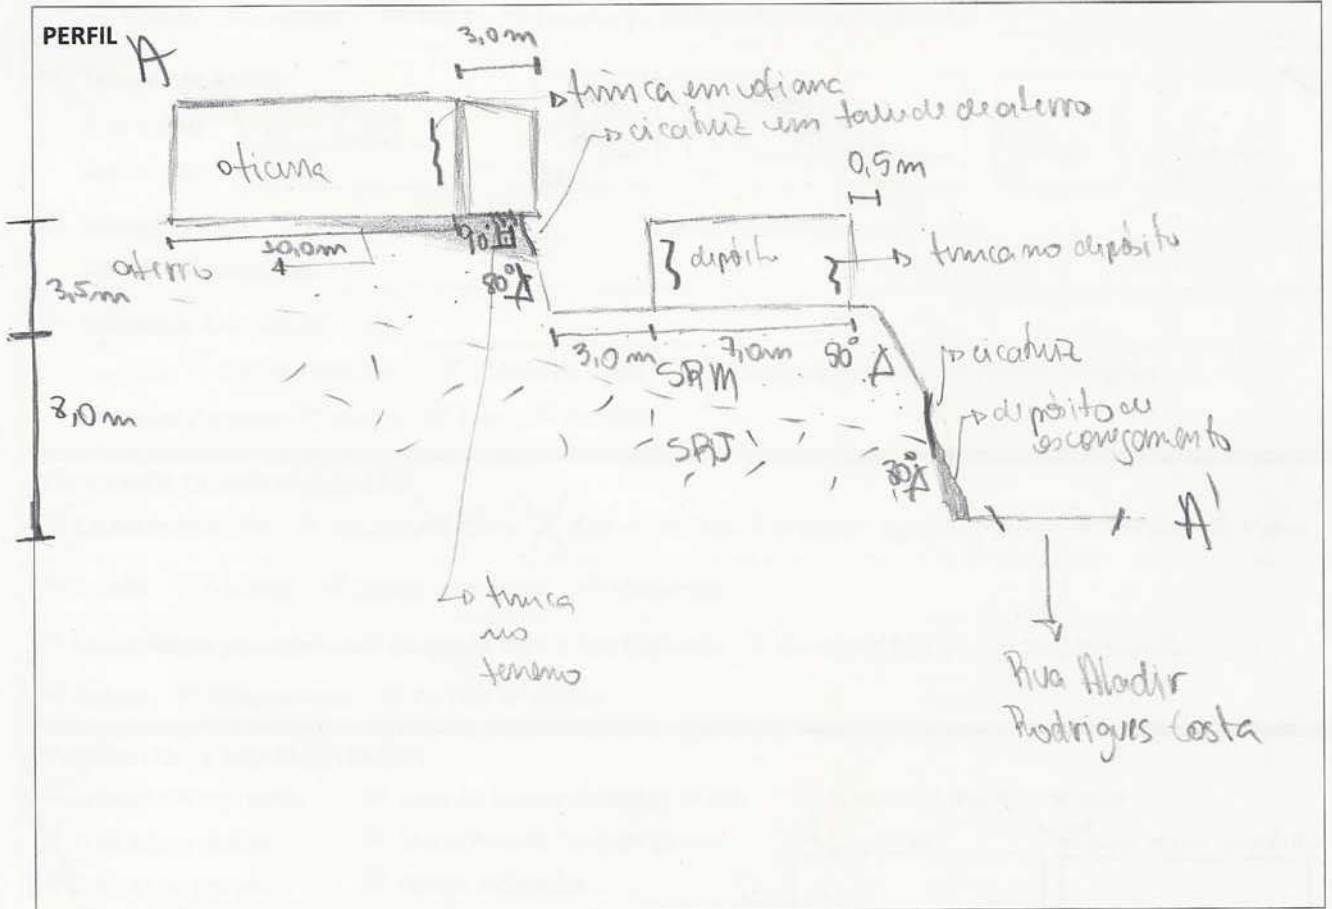 PERFIL A
3,0m
trinca em oficina
cicatriz em talude de aterro
0,5m
oficina
90°
10,0m
aterro
80°
depósito
trinca no depósito
3,5m
3,0m
7,0m
80°
SRM
cicatriz
8,0m
depósito de
escorregamento
SRJ
A'
trinca
no
terreno
Rua Aladir
Rodrigues Costa